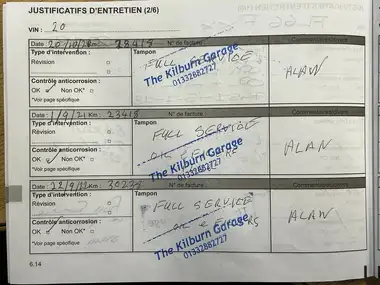 JUSTIFICATIFS D'ENTRETIEN (2/6)
VIN : 20
Date : 20/10/20 Km : 23418 N° de facture : Commentaires/divers
Type d'intervention : Tampon
FULL SERVICE
Révision
The Kilburn Garage
01332882727
ALAN
Contrôle anticorrosion :
OK ✓ Non OK*
*Voir page spécifique
Date : 1/9/21 Km : 23418 N° de facture : Commentaires/divers
Type d'intervention : Tampon
FULL SERVICE
Révision
OIL
The Kilburn Garage
01332882727
ALAN
Contrôle anticorrosion :
OK ✓ Non OK*
*Voir page spécifique
Date : 22/9/22 Km : N° de facture : Commentaires/divers
Type d'intervention : Tampon
FULL SERVICE
Révision
OIL
The Kilburn Garage
01332882727
ALAN
Contrôle anticorrosion :
OK ✓ Non OK*
*Voir page spécifique
6.14